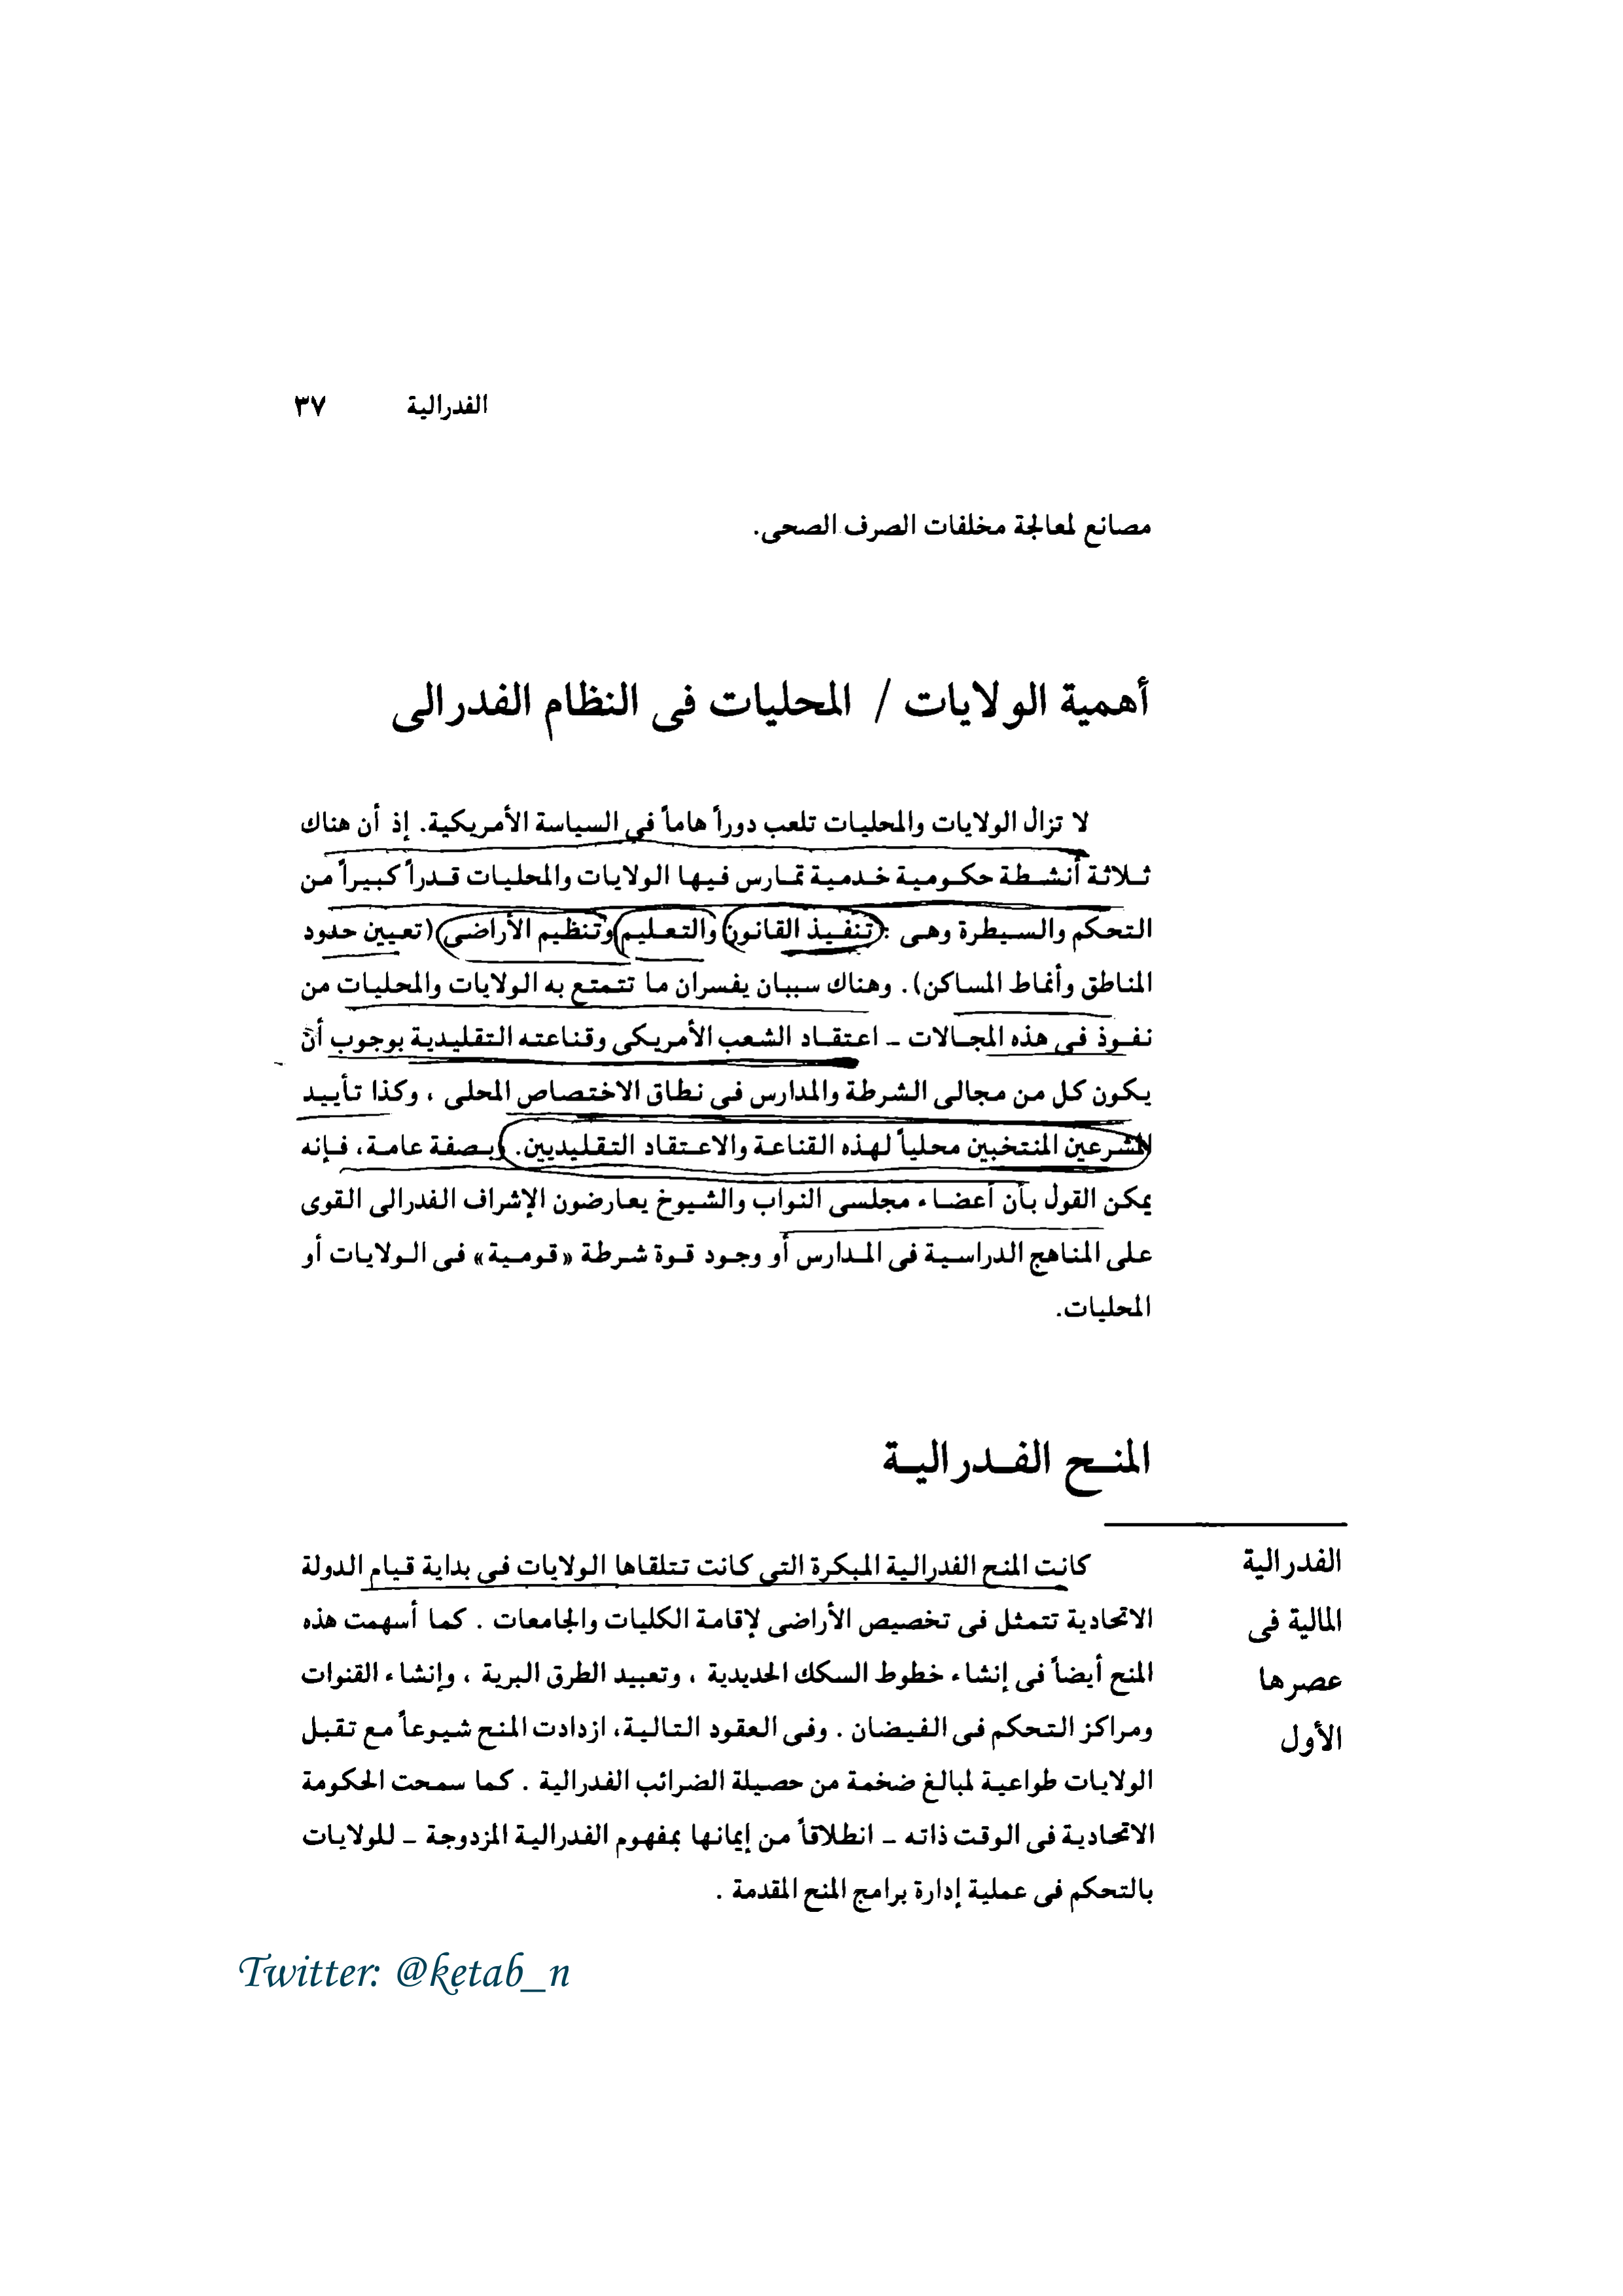 الفدرالية ٣٧
مصانع لمعالجة مخلفات الصرف الصحى.
أهمية الولايات / المحليات فى النظام الفدرالى
لا تزال الولايات والمحليات تلعب دوراً هاماً فى السياسة الأمريكية. إذ أن هناك
ثلاثة أنشطة حكومية خدمية تمارس فيها الولايات والمحليات قدراً كبيراً من
التحكم والسيطرة وهى : تنفيذ القانون والتعليم وتنظيم الأراضى (تعيين حدود
المناطق وأنماط المساكن). وهناك سببان يفسران ما تتمتع به الولايات والمحليات من
نفوذ فى هذه المجالات – اعتقاد الشعب الأمريكى وقناعته التقليدية بوجوب أن
يكون كل من مجالى الشرطة والمدارس فى نطاق الاختصاص المحلى ، وكذا تأييد
المشرعين المنتخبين محلياً لهذه القناعة والاعتقاد التقليديين. وبصفة عامة، فإنه
يمكن القول بأن أعضاء مجلسى النواب والشيوخ يعارضون الإشراف الفدرالى القوى
على المناهج الدراسية فى المدارس أو وجود قوة شرطة «قومية» فى الولايات أو
المحليات.
المنح الفدرالية
الفدرالية
المالية فى
عصرها
الأول
كانت المنح الفدرالية المبكرة التى كانت تتلقاها الولايات فى بداية قيام الدولة
الاتحادية تتمثل فى تخصيص الأراضى لإقامة الكليات والجامعات . كما أسهمت هذه
المنح أيضاً فى إنشاء خطوط السكك الحديدية ، وتعبيد الطرق البرية ، وإنشاء القنوات
ومراكز التحكم فى الفيضان . وفى العقود التالية، ازدادت المنح شيوعاً مع تقبل
الولايات طواعية لمبالغ ضخمة من حصيلة الضرائب الفدرالية . كما سمحت الحكومة
الاتحادية فى الوقت ذاته – انطلاقاً من إيمانها بمفهوم الفدرالية المزدوجة – للولايات
بالتحكم فى عملية إدارة برامج المنح المقدمة .
Twitter: @ketab_n